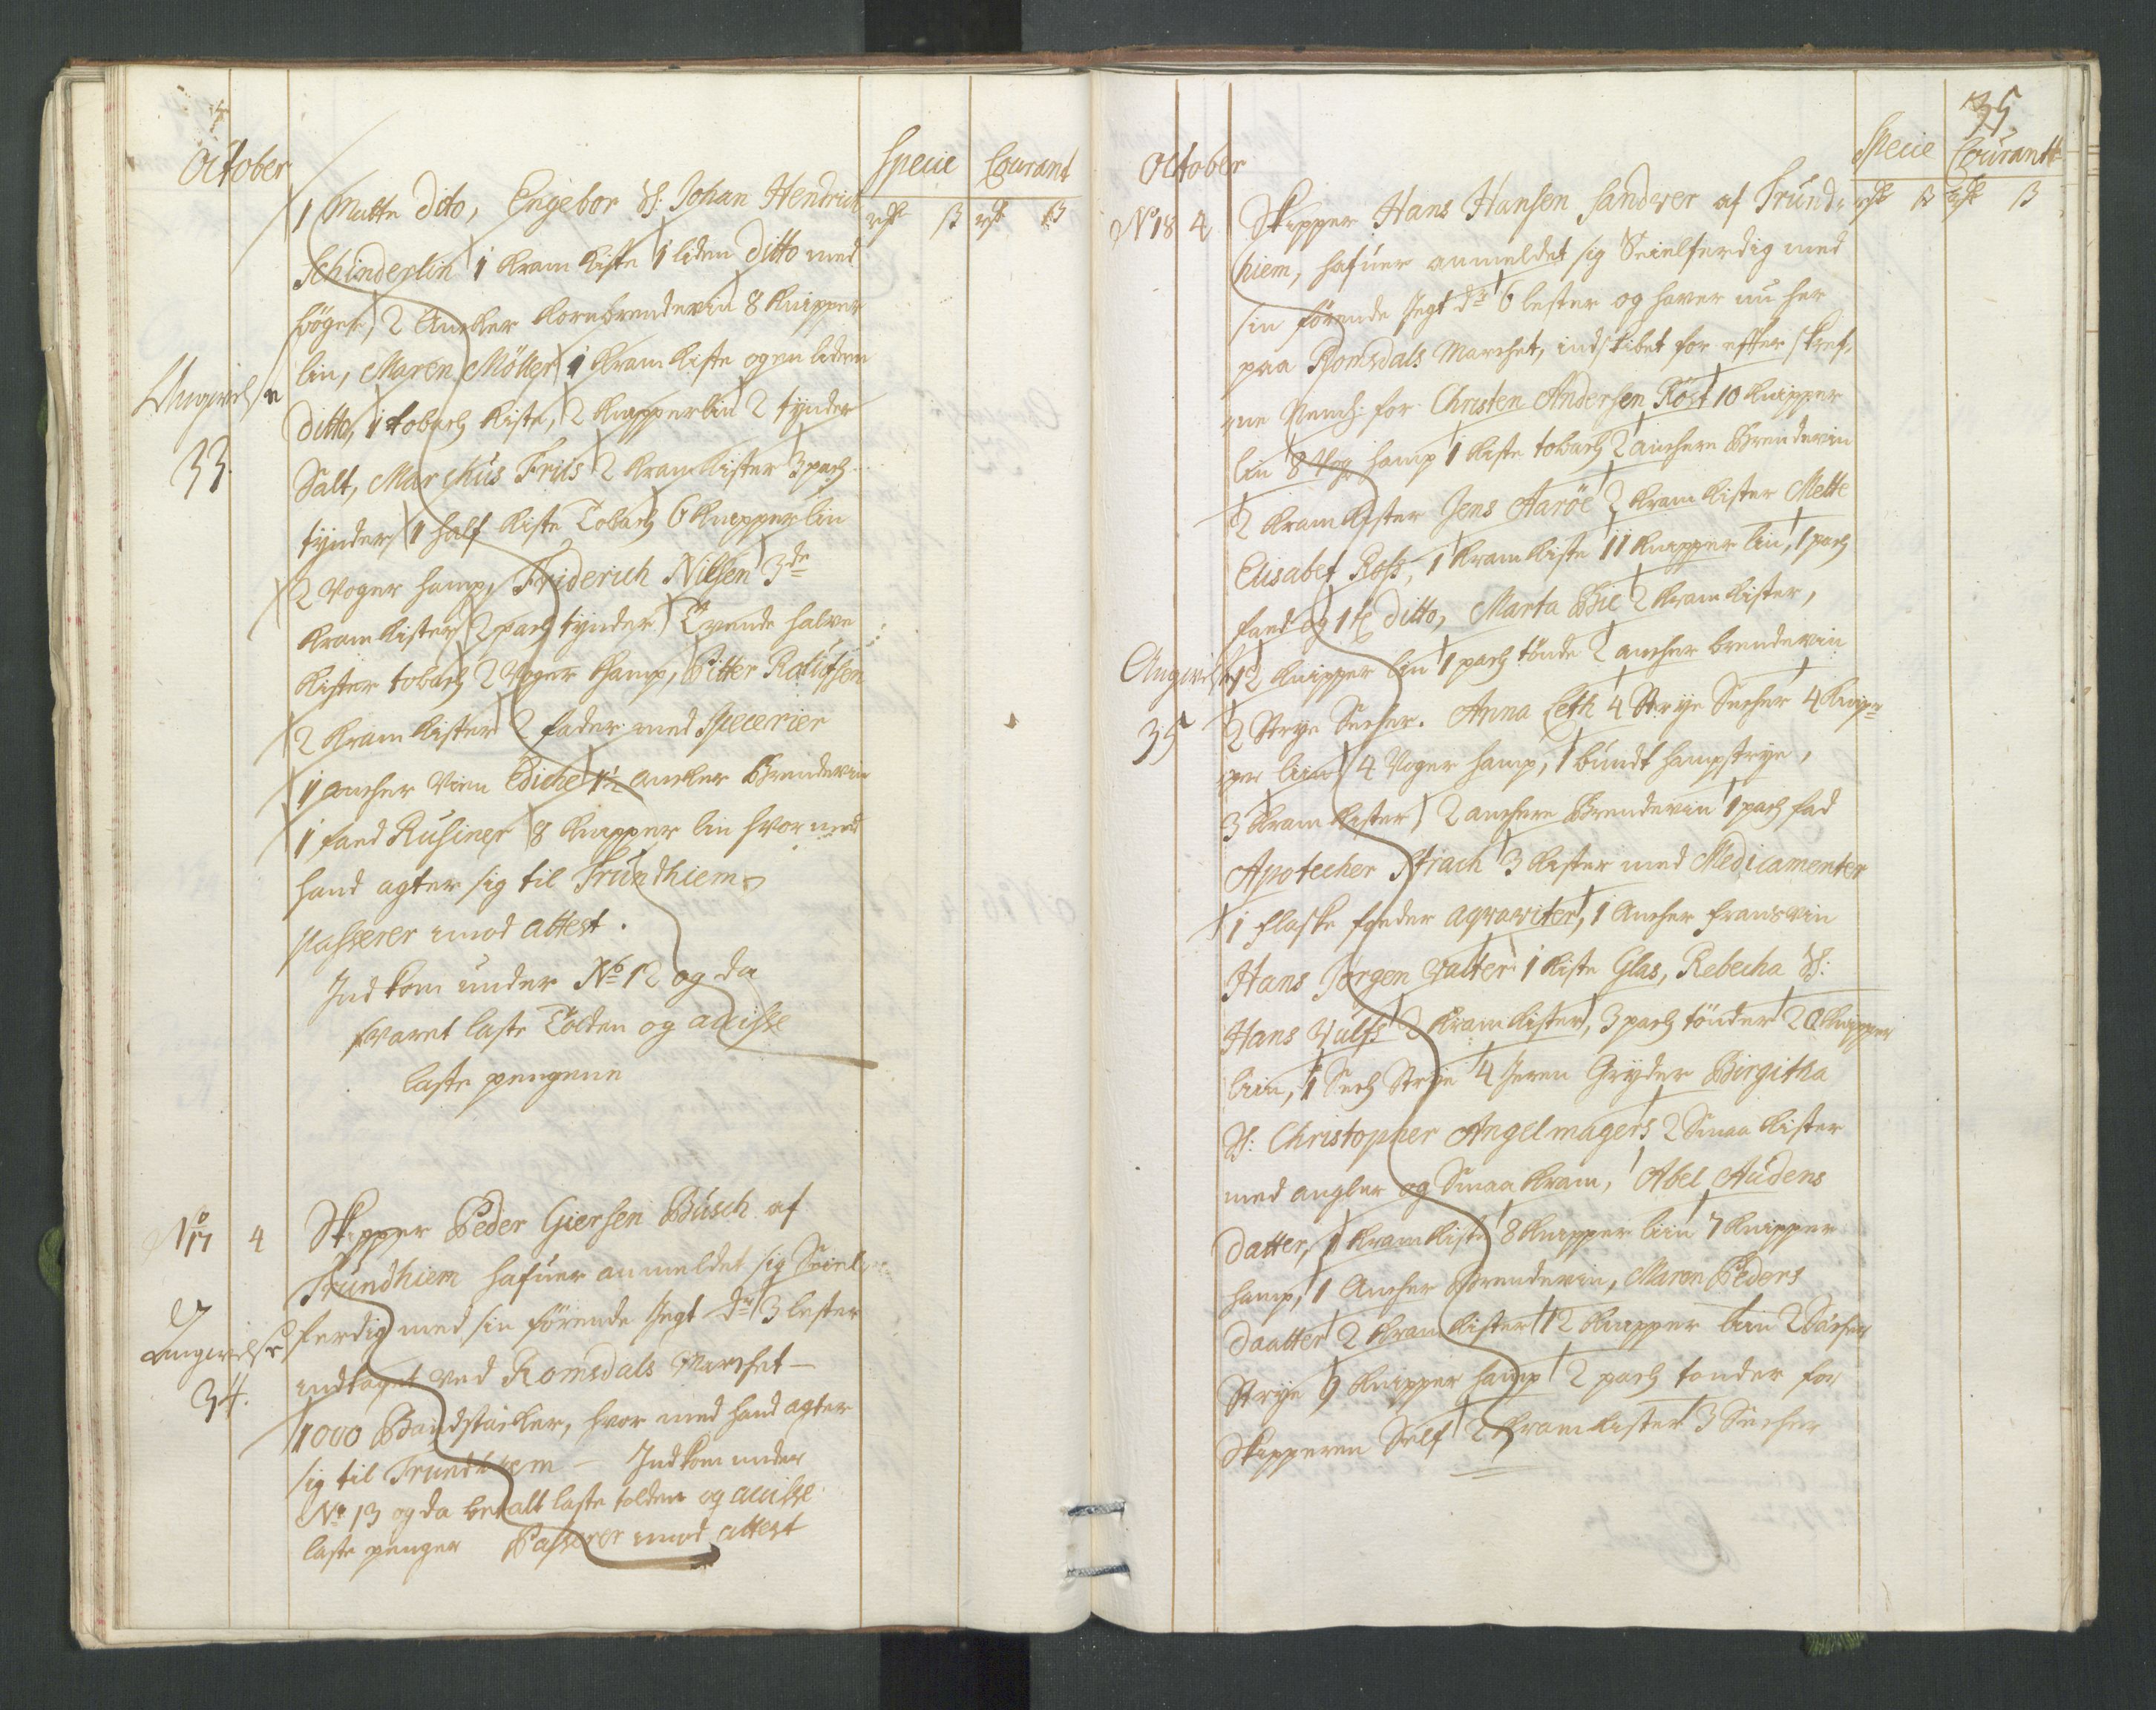 October
Specie Courant
rdr ß rdr ß
1 Matte dito, Engebor Sl: Johan Hendrich
Schinderlin 1 kram kiste 1 liden ditto med
bøger, 2 Ancker kornbrendevin 8 knipper
lin, Maren Möller 1 kram kiste og en liden
Angivelse
ditto, 1 tobach kiste, 2 knipper lin 2 tynder
33.
Salt, Marchus Friis 2 kram kister 3 pach
tynder 1 half kiste Tobach 6 knipper lin
2 Voger hamp, Friderich Nilsen 3de
kram kister 2 pach tynder Tvende halve
kister tobach 2 Voger Hamp, Pitter Rolufsen
2 kram kister 2 fader med Specerier
1 ancher Vin Ediche 1½ ancker Brendevin
1 faed Rusiner 8 knipper lin hvor med
hand agter sig til Trundhiem
passerer imod attest.
Ind kom under No 12 og da
svaret laste Tolden og accisse
laste pengene
No 17 4 Skipper Peder Giersen Busch af
Trundhiem hafuer anmeldet sig Seiel
Angivelse ferdig med sin førende Jegt dr 3 lester
indtaget ved Romsdals Marchet
34.
1000 Baandstacker, hvor med hand agter
sig til Trundhiem - Ind kom under
No 13 og da betalt laste tolden og accisse
laste penger Passerer imod attest
35
October
Specie Courantt
rdr ß rdr ß
No 18 4 Skipper Hans Hansen Sandver af Trund:
hiem, hafuer anmeldet sig Seielferdig med
sin førende Jegt dr 6 lester og haver nu her
paa Romsdals Marchet, indskibet for efter skref,
ne Nemh: for Christen Andersen Röst 10 knipper
lin 8 Vog hamp 1 kiste tobach 2 anchere Brendevin
2 kram kister Jens Aaröe 2 kram kister Mette
Elisabet Ross, 1 kram kiste 11 knipper lin, 1 pach
faed og 1 te ditto, Marta Bie 2 kram kister,
Angivelse 12 knipper lin 1 pach tönde 2 ancher brendevin
35 2 Strye Secher. Anna Leth 4 Strye Secher 4 knip
per liin 4 Voger hamp, 1 bundt hampstrye,
3 kram kister 2 anchere Brendevin 1 pach fad
Apotecher Strach 3 kister med Medicamenter
1 flaske foeder aqvaviter, 1 Ancher fransvin
Hans Jørgen Valter 1 kiste Glas, Rebecha Sl:
Hans Wulfs 2 kram kister, 3 pach tönder 20 knipper
liin, 1 Sech Strie 4 Jeren Gryder Birgitha
Sl: Christopher Angelmagers 2 Smaa kister
med angler og Smaa kram, Abel Audens
datter, 1 kram kiste 8 knipper liin 7 knipper
hamp, 1 Ancher Brendevin, Maren Peders
daatter 2 kram kister 12 knipper liin 2 Secher
Strye 9 knipper hamp 2 pach tonder for
Skipperen Self 2 kram kister 3 Secher